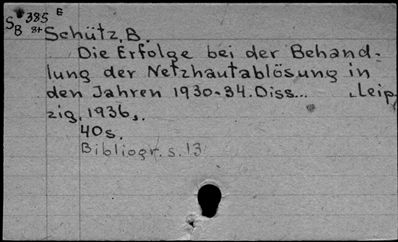 S 385 E
8 8+ Schütz, B.
Die Erfolge bei der Behand-
lung der Netzhautablösung in
den Jahren 1930-34. Diss... Leip
zig, 1936,.
40s.
Bibliogr. s. 13